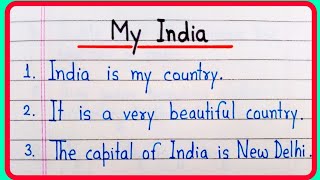 My India
1. India is my country.
2. It is a very beautiful country.
3. The capital of India is New Delhi.